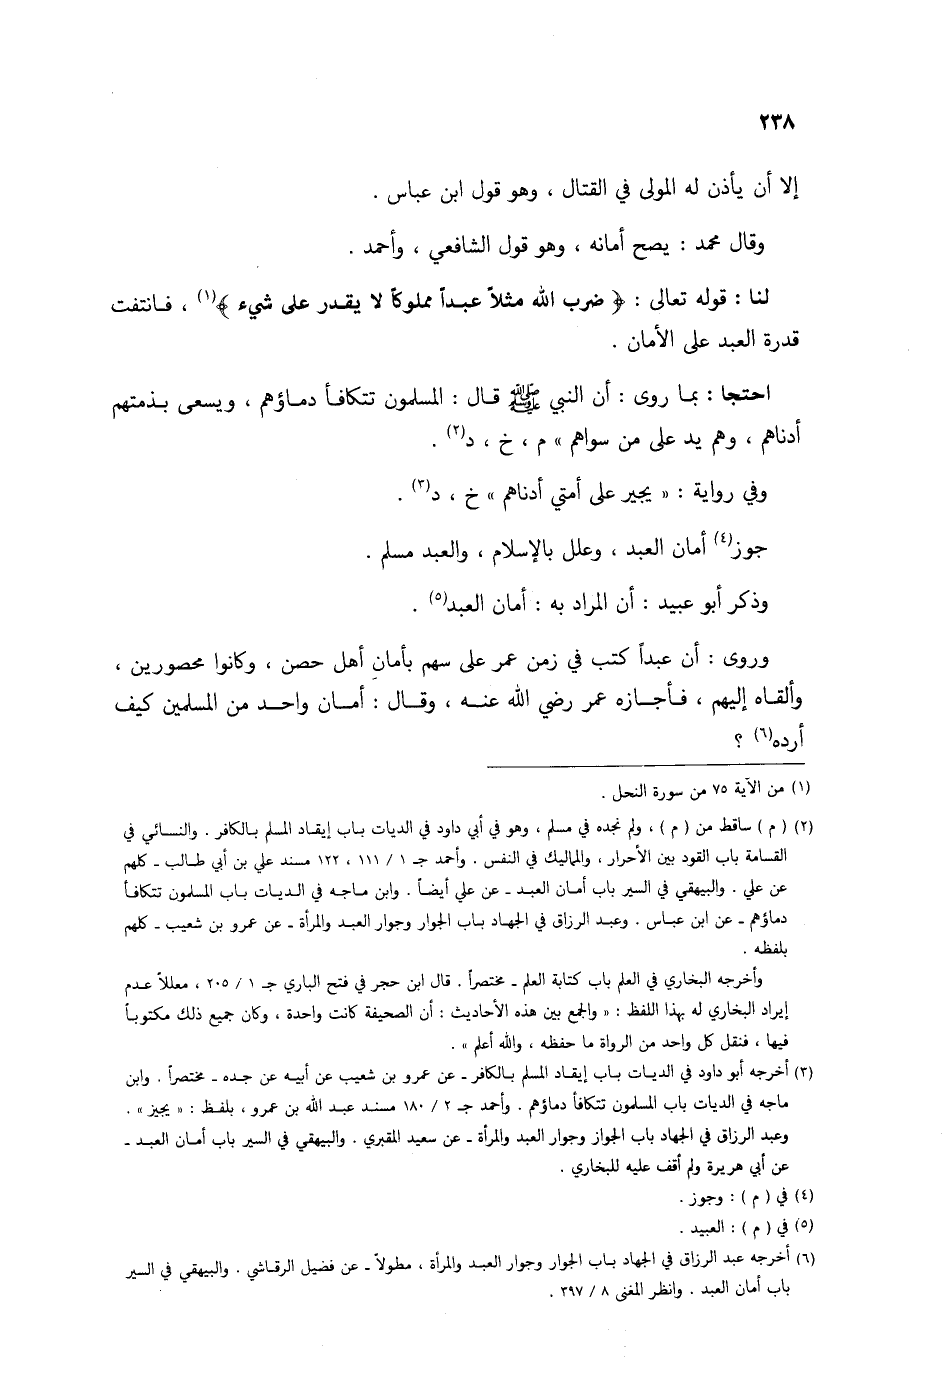 ٢٣٨
إلا أن يأذن له المولى في القتال ، وهو قول ابن عباس .
وقال محمد : يصح أمانه ، وهو قول الشافعي ، وأحمد .
لنا : قوله تعالى : ﴿ ضرب الله مثلاً عبداً مملوكاً لا يقدر على شيء ﴾(١) ، فانتفت
قدرة العبد على الأمان .
احتجا : بما روى : أن النبي ﷺ قال : المسلمون تتكافأ دماؤهم ، ويسعى بذمتهم
أدناهم ، وهم يد على من سواهم » م ، خ ، د(٢) .
وفي رواية : « يجير على أمتي أدناهم » خ ، د(٣) .
جوز(٤) أمان العبد ، وعلل بالإسلام ، والعبد مسلم .
وذكر أبو عبيد : أن المراد به : أمان العبد(٥) .
وروى : أن عبداً كتب في زمن عمر على سهم بأمان أهل حصن ، وكانوا محصورين ،
وألقاه إليهم ، فأجازه عمر رضي الله عنه ، وقال : أمان واحد من المسلمين كيف
أرده(٦) ؟
(١) من الآية ٧٥ من سورة النحل .
(٢) ( م ) ساقط من ( م ) ، ولم نجده في مسلم ، وهو في أبي داود في الديات باب إيقاد المسلم بالكافر . والنسائي في
القسامة باب القود بين الأحرار ، والمماليك في النفس . وأحمد جـ ١ / ١١١ ، ١٢٢ مسند علي بن أبي طالب ـ كلهم
عن علي . والبيهقي في السير باب أمان العبد ـ عن علي أيضاً . وابن ماجه في الديات باب المسلمون تتكافأ
دماؤهم ـ عن ابن عباس . وعبد الرزاق في الجهاد باب الجوار وجوار العبد والمرأة ـ عن عمرو بن شعيب ـ كلهم
بلفظه .
وأخرجه البخاري في العلم باب كتابة العلم ـ مختصراً . قال ابن حجر في فتح الباري جـ ١ / ٢٠٥ ، معللاً عدم
إيراد البخاري له بهذا اللفظ : « والجمع بين هذه الأحاديث : أن الصحيفة كانت واحدة ، وكان جميع ذلك مكتوباً
فيها ، فنقل كل واحد من الرواة ما حفظه ، والله أعلم » .
(٣) أخرجه أبو داود في الديات باب إيقاد المسلم بالكافر ـ عن عمرو بن شعيب عن أبيه عن جده ـ مختصراً . وابن
ماجه في الديات باب المسلمون تتكافأ دماؤهم . وأحمد جـ ٢ / ١٨٠ مسند عبد الله بن عمرو ، بلفظ : « يجيز » .
وعبد الرزاق في الجهاد باب الجواز وجوار العبد والمرأة ـ عن سعيد المقبري . والبيهقي في السير باب أمان العبد ـ
عن أبي هريرة ولم أقف عليه للبخاري .
(٤) في ( م ) : وجوز .
(٥) في ( م ) : العبيد .
(٦) أخرجه عبد الرزاق في الجهاد باب الجوار وجوار العبد والمرأة ، مطولاً ـ عن فضيل الرقاشي . والبيهقي في السير
باب أمان العبد . وانظر المغنى ٨ / ٣٩٧ .